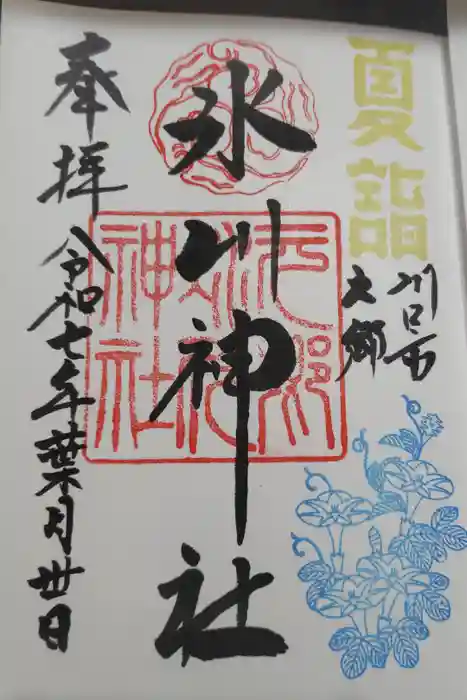 夏詣
川口市
元郷
氷川神社
元郷
氷川
神社
奉拝
令和七年葉月丗日